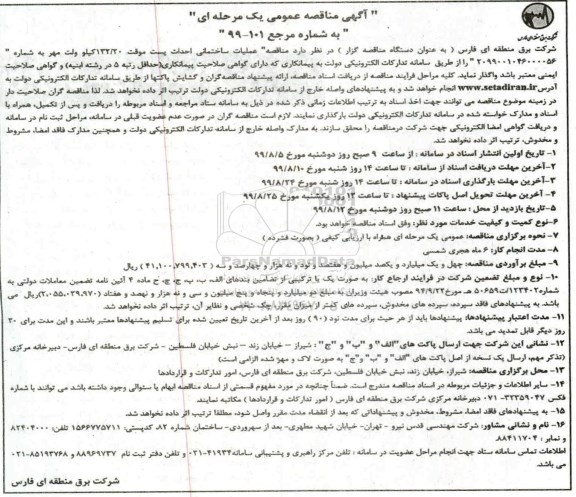 " آگهی مناقصه عمومی یک مرحله ای "
" به شماره مرجع ۱۰۱-۹۹ "
شرکت برق منطقه ای فارس ( به عنوان دستگاه مناقصه گزار ) در نظر دارد مناقصه" عملیات ساختمانی احداث پست موقت ۱۳۲/۲۰کیلو ولت مهر به شماره "
۲۰۹۹۰۰۱۰۴۶۰۰۰۰۵۶ " را از طریق سامانه تدارکات الکترونیکی دولت به پیمانکاری که دارای گواهی صلاحیت پیمانکاری(حداقل رتبه ۵ در رشته ابنیه) و گواهی صلاحیت
ایمنی معتبر باشد واگذار نماید. کلیه مراحل فرآیند مناقصه از دریافت اسناد مناقصه، ارائه پیشنهاد مناقصه‌گران و گشایش پاکتها از طریق سامانه تدارکات الکترونیکی دولت به
آدرس www.setadiran.ir انجام خواهد شد و به پیشنهادهای واصله خارج از سامانه تدارکات الکترونیکی دولت ترتیب اثر داده نخواهد شد. لذا مناقصه گران صلاحیت دار
در زمینه موضوع مناقصه می توانند جهت اخذ اسناد به ترتیب اطلاعات زمانی ذکر شده در ذیل به سامانه ستاد مراجعه و اسناد مربوطه را دریافت و پس از تکمیل، همراه با
اسناد و مدارک خواسته شده در سامانه تدارکات الکترونیکی دولت بارگذاری نمایند. لازم است مناقصه گران در صورت عدم عضویت قبلی در سامانه، مراحل ثبت نام در سامانه
و دریافت گواهی امضا الکترونیکی جهت شرکت درمناقصه را محقق سازند. به مدارک واصله خارج از سامانه تدارکات الکترونیکی دولت و همچنین مدارک فاقد امضا، مشروط
و مخدوش، ترتیب اثر داده نخواهد شد.
۱- تاریخ اولین انتشار اسناد در سامانه : از ساعت ۹ صبح روز دوشنبه مورخ ۹۹/۸/۵
۲-آخرین مهلت دریافت اسناد از سامانه : تا ساعت ۱۴ روز شنبه مورخ ۹۹/۸/۱۰
۳-آخرین مهلت بارگذاری اسناد در سامانه : تا ساعت ۱۴ روز شنبه مورخ ۹۹/۸/۲۴
۴- آخرین مهلت تحویل اصل پاکات پیشنهاد : تا ساعت ۱۳ روز یکشنبه مورخ ۹۹/۸/۲۵
۵-تاریخ بازدید از محل : ساعت ۱۱ صبح روز دوشنبه مورخ ۹۹/۸/۱۲
۶-نوع کمیت و کیفیت خدمات مورد نظر: وفق اسناد مناقصه خواهد بود.
۷- نحوه برگزاری مناقصه: عمومی یک مرحله ای همراه با ارزیابی کیفی ( بصورت فشرده )
۸- مدت انجام کار: ۶ ماه هجری شمسی
۹- مبلغ برآوردی مناقصه: چهل و یک میلیارد و یکصد میلیون و هفتصد و نود و نه هزار و چهارصد و سه ( ۴۱,۱۰۰,۷۹۹,۴۰۳) ریال
۱۰- نوع و مبلغ تضمین شرکت در فرآیند ارجاع کار: به صورت یک یا ترکیبی از تضامین بندهای الف، ب، پ، ج، چ، ح ماده ۴ آئین نامه تضمین معاملات دولتی به
شماره۱۲۳۴۰۲/ت۵۰۶۵۹هـ مورخ۹۴/۹/۲۲ مصوب هیئت وزیران به مبلغ دو میلیارد و پنجاه و پنج میلیون و سی و نه هزار و نهصد و هفتاد (۲,۰۵۵,۰۳۹,۹۷۰)ریال می
باشد. به پیشنهادهای فاقد سپرده، سپرده های مخدوش، سپرده های کمتر از میزان مقرر، چک شخصی و نظایر آن، ترتیب اثر داده نخواهد شد.
۱۱- مدت اعتبار پیشنهادها: پیشنهادها باید از هر حیث برای مدت نود (۹۰ ) روز بعد از آخرین تاریخ تعیین شده برای تسلیم پیشنهادها معتبر باشند و این مدت برای ۳۰
روز دیگر قابل تمدید می باشد.
۱۲- نشانی این شرکت جهت ارسال پاکت های"الف" و "ب" و "ج" : شیراز – خیابان زند – نبش خیابان فلسطین - شرکت برق منطقه ای فارس-دبیرخانه مرکزی
(تذکر مهم، ارسال یک نسخه از اصل پاکت های "الف" و "ب" و"ج" به صورت لاک و مهر شده الزامی است)
۱۳- محل برگزاری مناقصه: شیراز، خیابان زند، نبش خیابان فلسطین، شرکت برق منطقه ای فارس، امور تدارکات و قراردادها
۱۴- سایر اطلاعات و جزئیات مربوطه در اسناد مناقصه مندرج است. ضمناً چنانچه در مورد مفهوم قسمتی از اسناد مناقصه ابهام یا سئوالی وجود داشته باشد می توانند با شماره
فکس ۳۲۳۵۹۰۴۷-۰۷۱ دبیرخانه مرکزی شرکت برق منطقه ای فارس ( امور تدارکات و قراردادها ) مکاتبه نمایند.
۱۵- به پیشنهادهای فاقد امضا، مشروط، مخدوش و پیشنهاداتی که بعد از انقضاء مدت مقرر واصل شود، مطلقا ترتیب اثر داده نخواهد شد.
۱۶- نام و نشانی مشاور: شرکت مهندسی قدس نیرو - تهران- خیابان شهید مطهری- بعد از سهروردی- ساختمان شماره ۸۲، کدپستی: ۱۵۶۶۷۷۵۷۱۱ تلفن: ۸۲۴۰۴۰۰۰
و نمابر : ۸۸۴۱۱۷۰۴
اطلاعات تماس سامانه ستاد جهت انجام مراحل عضویت در سامانه : تلفن مرکز راهبری و پشتیبانی سامانه۴۱۹۳۴-۰۲۱ و تلفن دفتر ثبت نام ۸۸۹۶۹۷۳۷ و ۸۵۱۹۳۷۶۸-۰۲۱
می باشد.
شرکت برق منطقه ای فارس